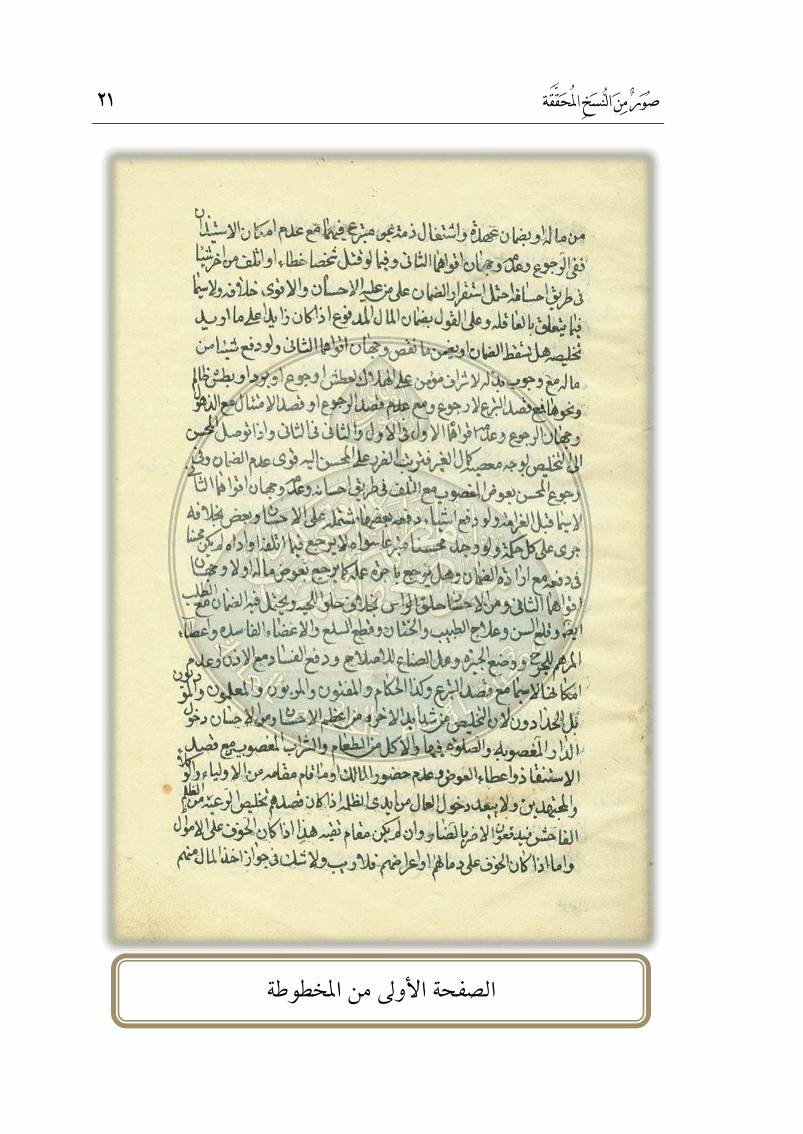 صُوَرٌ مِنَ النُّسَخِ المُحَقَّقَة
٢١
من ماله او بضمان عهدة واشتغال ذمته غير متبرع فيهما مع عدم امكان الاستيذان
ففى الرجوع وعدمه وجهان اقواهما الثانى وفيما لو قتل شخصا خطاء او اتلف من اخر شيئا
فى طريق احسانه احتمل استقرار الضمان على من عليه الاحسان والاقوى خلافه ولاسيما
فيما يتعلق بالعاقله وعلى القول بضمان المال المدفوع اذا كان زايدا على ما اريد
تخليصه هل يسقط الضمان او يضمن ما نقص وجهان اقواهما الثانى ولو دفع شيئا من
ماله مع وجوب بذله لاشراف مؤمن على الهلاك لعطش او جوع او برد او بطش ظالم
ونحوها فمع قصد التبرع لا رجوع ومع عدم قصد الرجوع او قصد الامتثال مع الذهول
وجهان الرجوع وعدمه اقواهما الاول فى الاول والثانى فى الثانى واذا توصل المحسن
الى التخليص لوجه معصية كمال الغير فترتب الضرر على المحسن اليه قوى عدم الضمان وفى
رجوع المحسن بعوض المغصوب مع التلف فى طريق احسانه وعدمه وجهان اقواهما الثانى
لاسيما قبل الغرامة ولو دفع اشياء دفعه بعضها مشتمله على الاحسان وبعض بخلافه
جرى على كل حكمه ولو وجد محسنا متبرعا سواه لا يرجع فيما اتلفه او اداه لم يكن محسنا
فى دفعه مع ارادة الضمان وهل يرجع باجرة عمله كما يرجع بعوض ماله او لا وجهان
اقواهما الثانى ومن الاحسان حلق الراس بخلاف حلق اللحيه ويحتمل فيه الضمان مع الطلب
ايضا وقلع السن وعلاج الطبيب والختان وقطع السلع والاعضاء الفاسده واعطاء
المرهم للجرح ووضع الجبيره وعمل الصناع للاصلاح ودفع الفساد مع الاذن وعدم
امكانها لاسيما مع قصد التبرع وكذا الحكام والمفتون والمربون والمعلمون والمؤدبون
بل الحدادون لان التخليص من شدايد الاخره من اعظم الاحسان ومن الاحسان دخول
الدار المغصوبه والصلوه فيها والاكل من الطعام والشراب المغصوب مع قصد
الاستنقاذ واعطاء العوض وعدم حضور المالك او ما قام مقامه من الاولياء والوكلاء
والمجتهدين ولا يبعد دخول العمال من ايدى الظلمه اذا كان قصدهم تخليص الرعيه من الظلم
الفاحش فيدفعون الاضر بالضار وان لم يكن مقام تقيه هذا اذا كان الخوف على الاموال
واما اذا كان الخوف على دمائهم او اعراضهم فلا ريب ولا شك فى جواز اخذ المال منهم
الصفحة الأولى من المخطوطة